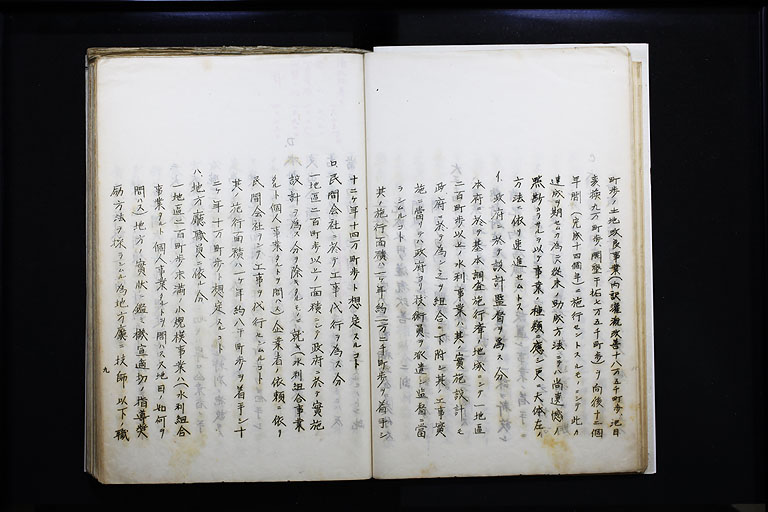 町歩ノ土地改良事業(内訳灌漑改善十八万五千町歩地目
変換九万町歩開墾干拓七万五千町歩)ヲ向後十二個
年間(完成十四個年)ニ施行セントスルモノニシテ此ノ
達成ヲ期セムカ為ニハ従来ノ助成方法ニテハ尚遺憾ノ
点ヲ以テ事業ノ種類ニ応シ更ニ大体左ノ
方法ニ依リ速進セムトス
イ、政府ニ於テ設計監督ヲ為ス分
本府ニ於テ基本調査施行済ノ地域ニシテ一地区
二百町歩以上ノ水利事業ハ其ノ実施設計ヲモ
政府ニ於テ為シ之ヲ組合ニ下附シ其ノ工事実
施ニ当リテハ政府ヨリ技術員ヲ派遣シ監督ニ当
ラシムルコト
其ノ施行面積ハ一ケ年約一万二千町歩ヲ着手シ
十二ケ年十四万町歩ト想定スルコト
ロ、民間会社ニ於テ工事代行ヲ為ス分
一地区二百町歩以上ノ面積ニシテ政府ニ於テ実施
設計ヲ為ス分ヲ除キタルモノニ就キ(水利組合事業
タルト個人事業タルトヲ問ハス)企業者ノ依頼ニ依リ
民間会社ヲシテ工事ヲ代行セシムルコト
其ノ施行面積ハ一ケ年約八千町歩ヲ着手シ十
二ケ年十万町歩ト想定スルコト
ハ、地方庁職員ニ依ル分
一地区二百町歩未満ノ小規模事業ハ(水利組合
事業タルト個人事業タルトヲ問ハス又地目ノ如何ヲ
問ハス)地方ノ実状ニ鑑ミ機宜適切ノ指導奨
励方法ヲ採ラシムル為地方庁ニ技師以下ノ職
九